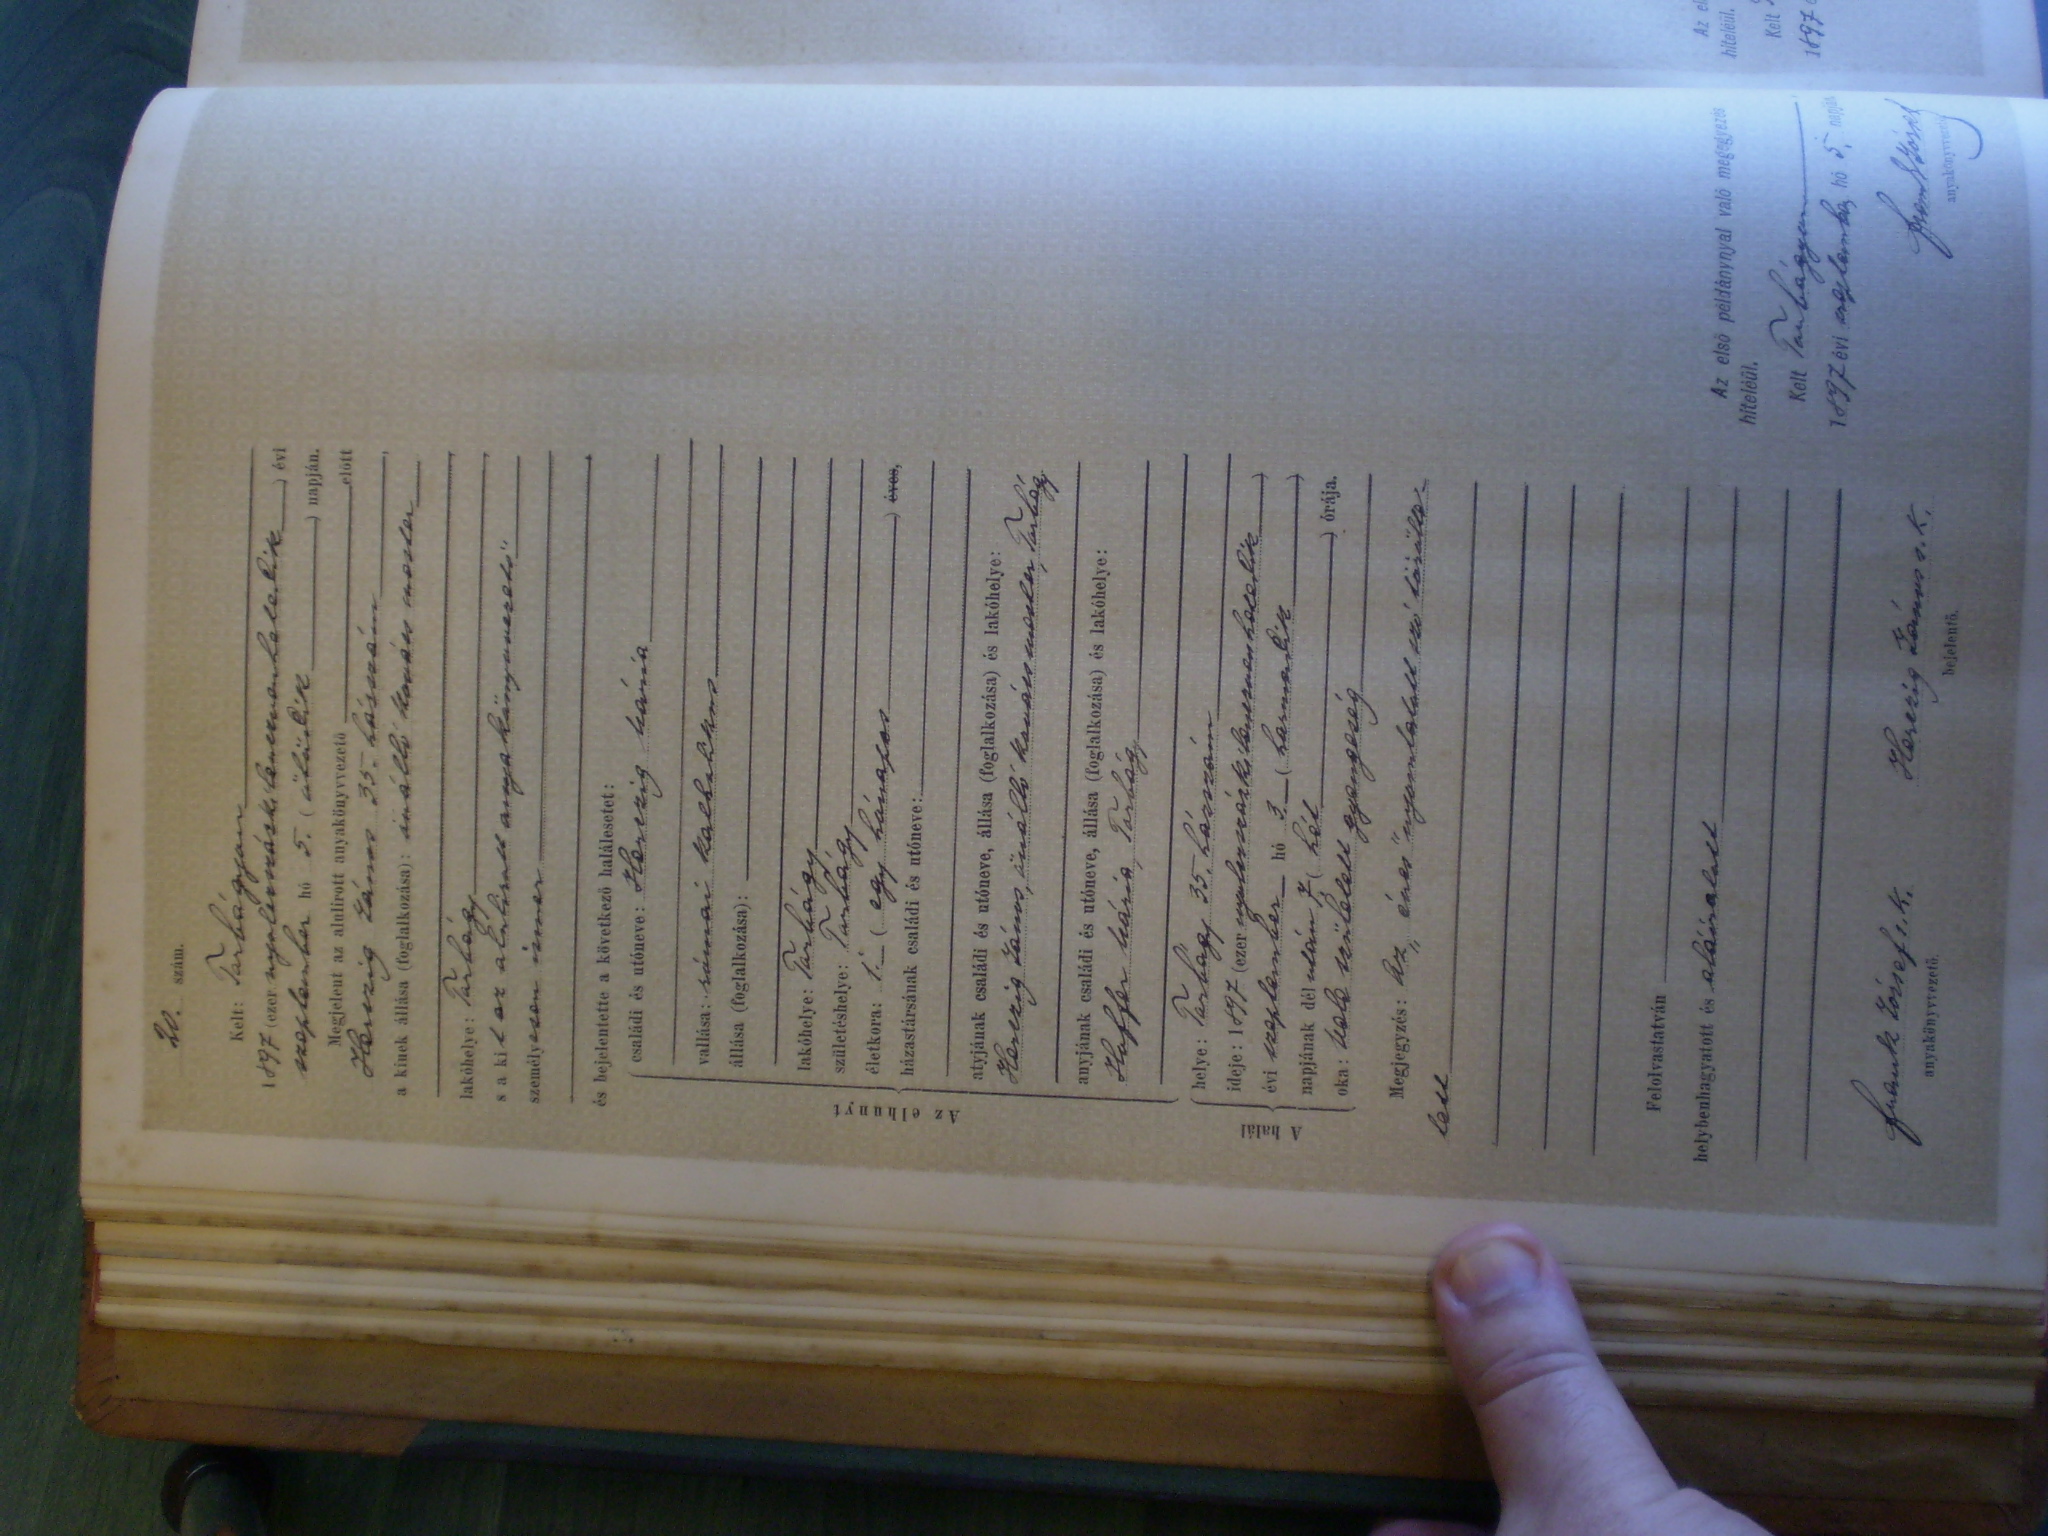 20. szám.
Kelt: Torbágyon
1897 (ezer nyolczszázkilenczvenhetedik) évi
szeptember hó 5. (ötödik) napján.
Megjelent az alulirott anyakönyvvezető előtt
Herczig János 35. házszám
a kinek állása (foglalkozása): önálló kovács mester
lakóhelye: Torbágy
s a kit az alulirott anyakönyvvezető
személyesen ismer
és bejelentette a következő halálesetet:
Az elhunyt
családi és utóneve: Herczig Mária
vallása: római katholikus
állása (foglalkozása):
lakóhelye: Torbágy
születéshelye: Torbágy
életkora: 1. (egy hónapos) éves,
házastársának családi és utóneve:
atyjának családi és utóneve, állása (foglalkozása) és lakóhelye:
Herczig János, önálló kovács mester, Torbágy
anyjának családi és utóneve, állása (foglalkozása) és lakóhelye:
Hoffer Mária, Torbágy
A halál
helye: Torbágy 35. házszám
ideje: 1897 (ezer nyolczszázkilenczvenhetedik)
évi szeptember hó 3. (harmadik)
napjának dél után 7 (hét) órája.
oka: Vele született gyengeség
Megjegyzés: Az „éves" nyomtatott szó törölte-
tett
Felolvastatván
helybenhagyatott és aláiratott
Frank József s. k.
anyakönyvvezető.
Herczig János s. k.
bejelentő.
Az első példánynyal való megegyezés
hiteléül.
Kelt Torbágyon
1897 évi szeptember hó 5. napján
Frank József
anyakönyvvezető
Az el
hiteléül.
Kelt
1897 é